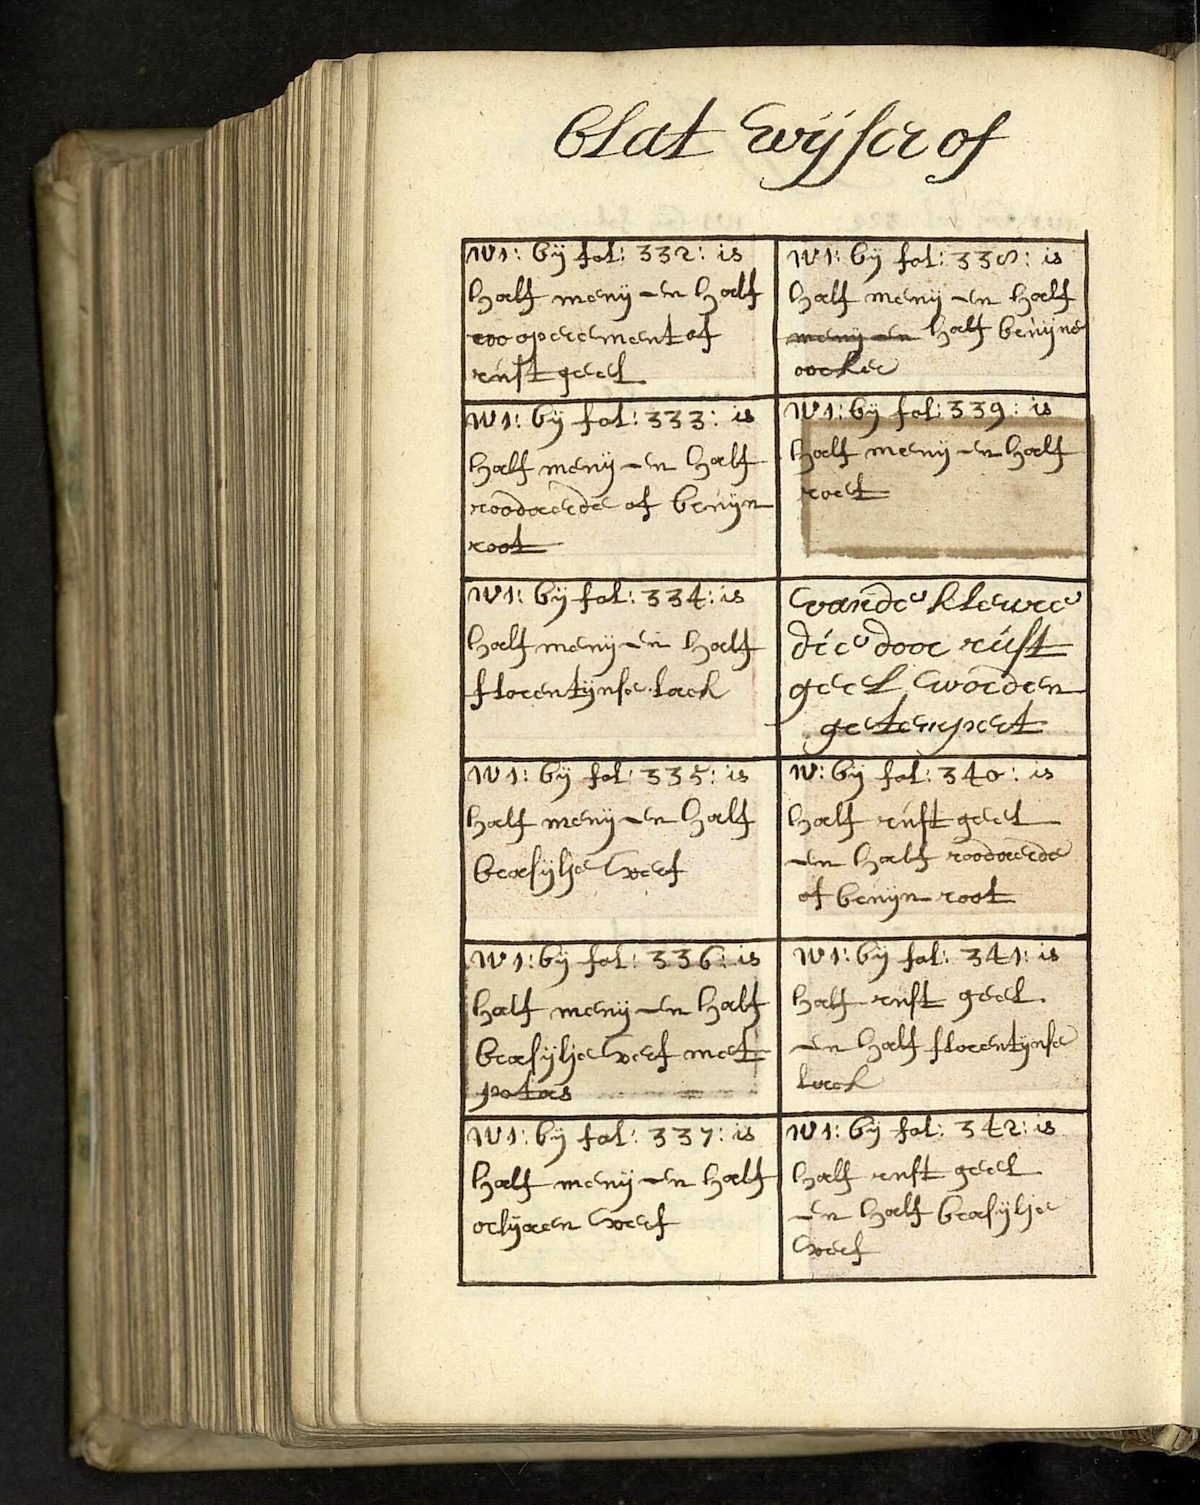 blat wijser of
N1: bij fol: 332: is
half menij en half
roo operement of
rust geel
N1: bij fol: 333: is
half menij en half
roodaerde of bruijn
root
N1: bij fol: 334: is
half menij en half
florentijnse lack
N1: bij fol: 335: is
half menij en half
brasijlje verf
N1: bij fol: 336: is
half menij en half
brasijlje verf met
potas
N1: bij fol: 337: is
half menij en half
orljaen verf
N1: bij fol: 338: is
half menij en half
menij en half bruijne
oocker
N1: bij fol: 339: is
half menij en half
roet
vande kleure
die door rust
geel worden
getempert
N: bij fol: 340: is
half rust geel
en half roodaerde
of bruijn root
N1: bij fol: 341: is
half rust geel
en half florentijnse
lack
N1: bij fol: 342: is
half rust geel
en half brasijlje
verf